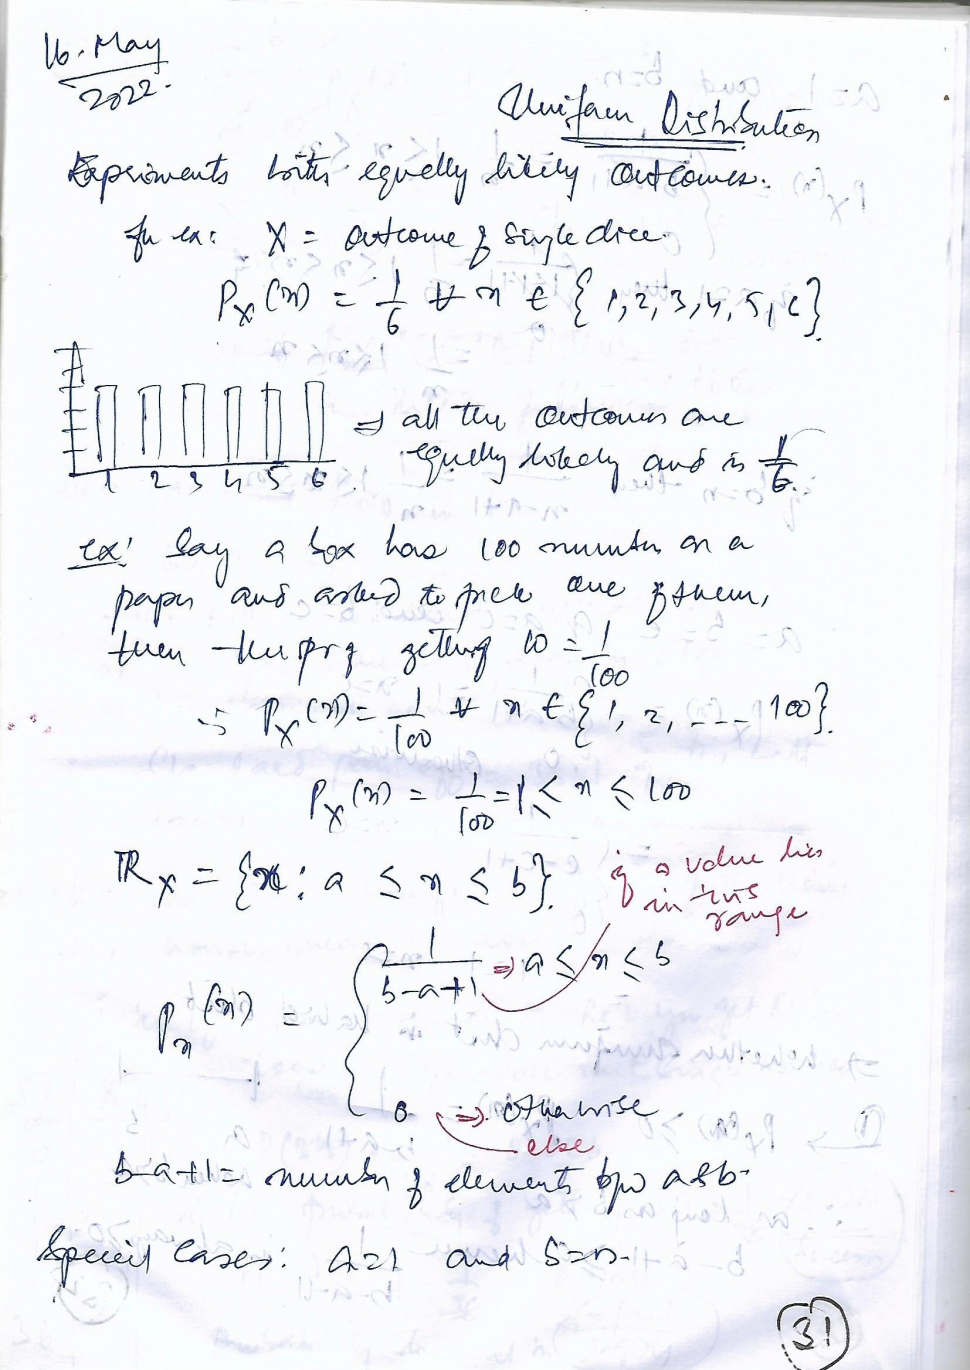 16. May
2022.
Uniform Distribution
Experiments with equally likely outcomes.
for ex: X = outcome of single dice.
P_X(x) = 1/6 ∀ x ∈ {1,2,3,4,5,6}
1 2 3 4 5 6
⇒ all the outcomes are
equally likely and is 1/6.
ex: Say a box has 100 number on a
paper and asked to pick one of them,
then the pr of getting 10 = 1/100
∴ P_X(x) = 1/100 ∀ x ∈ {1, 2, --- 100}.
P_X(x) = 1/100 = 1 ≤ x ≤ 100
R_X = {x : a ≤ x ≤ b}.
if a value lies
in this
range
P_x(x) = { 1/(b-a+1) ⇒ a ≤ x ≤ b
0 ⇒ otherwise
else
b-a+1 = number of elements b/w a & b.
Special Cases: a=1 and b=n.
31